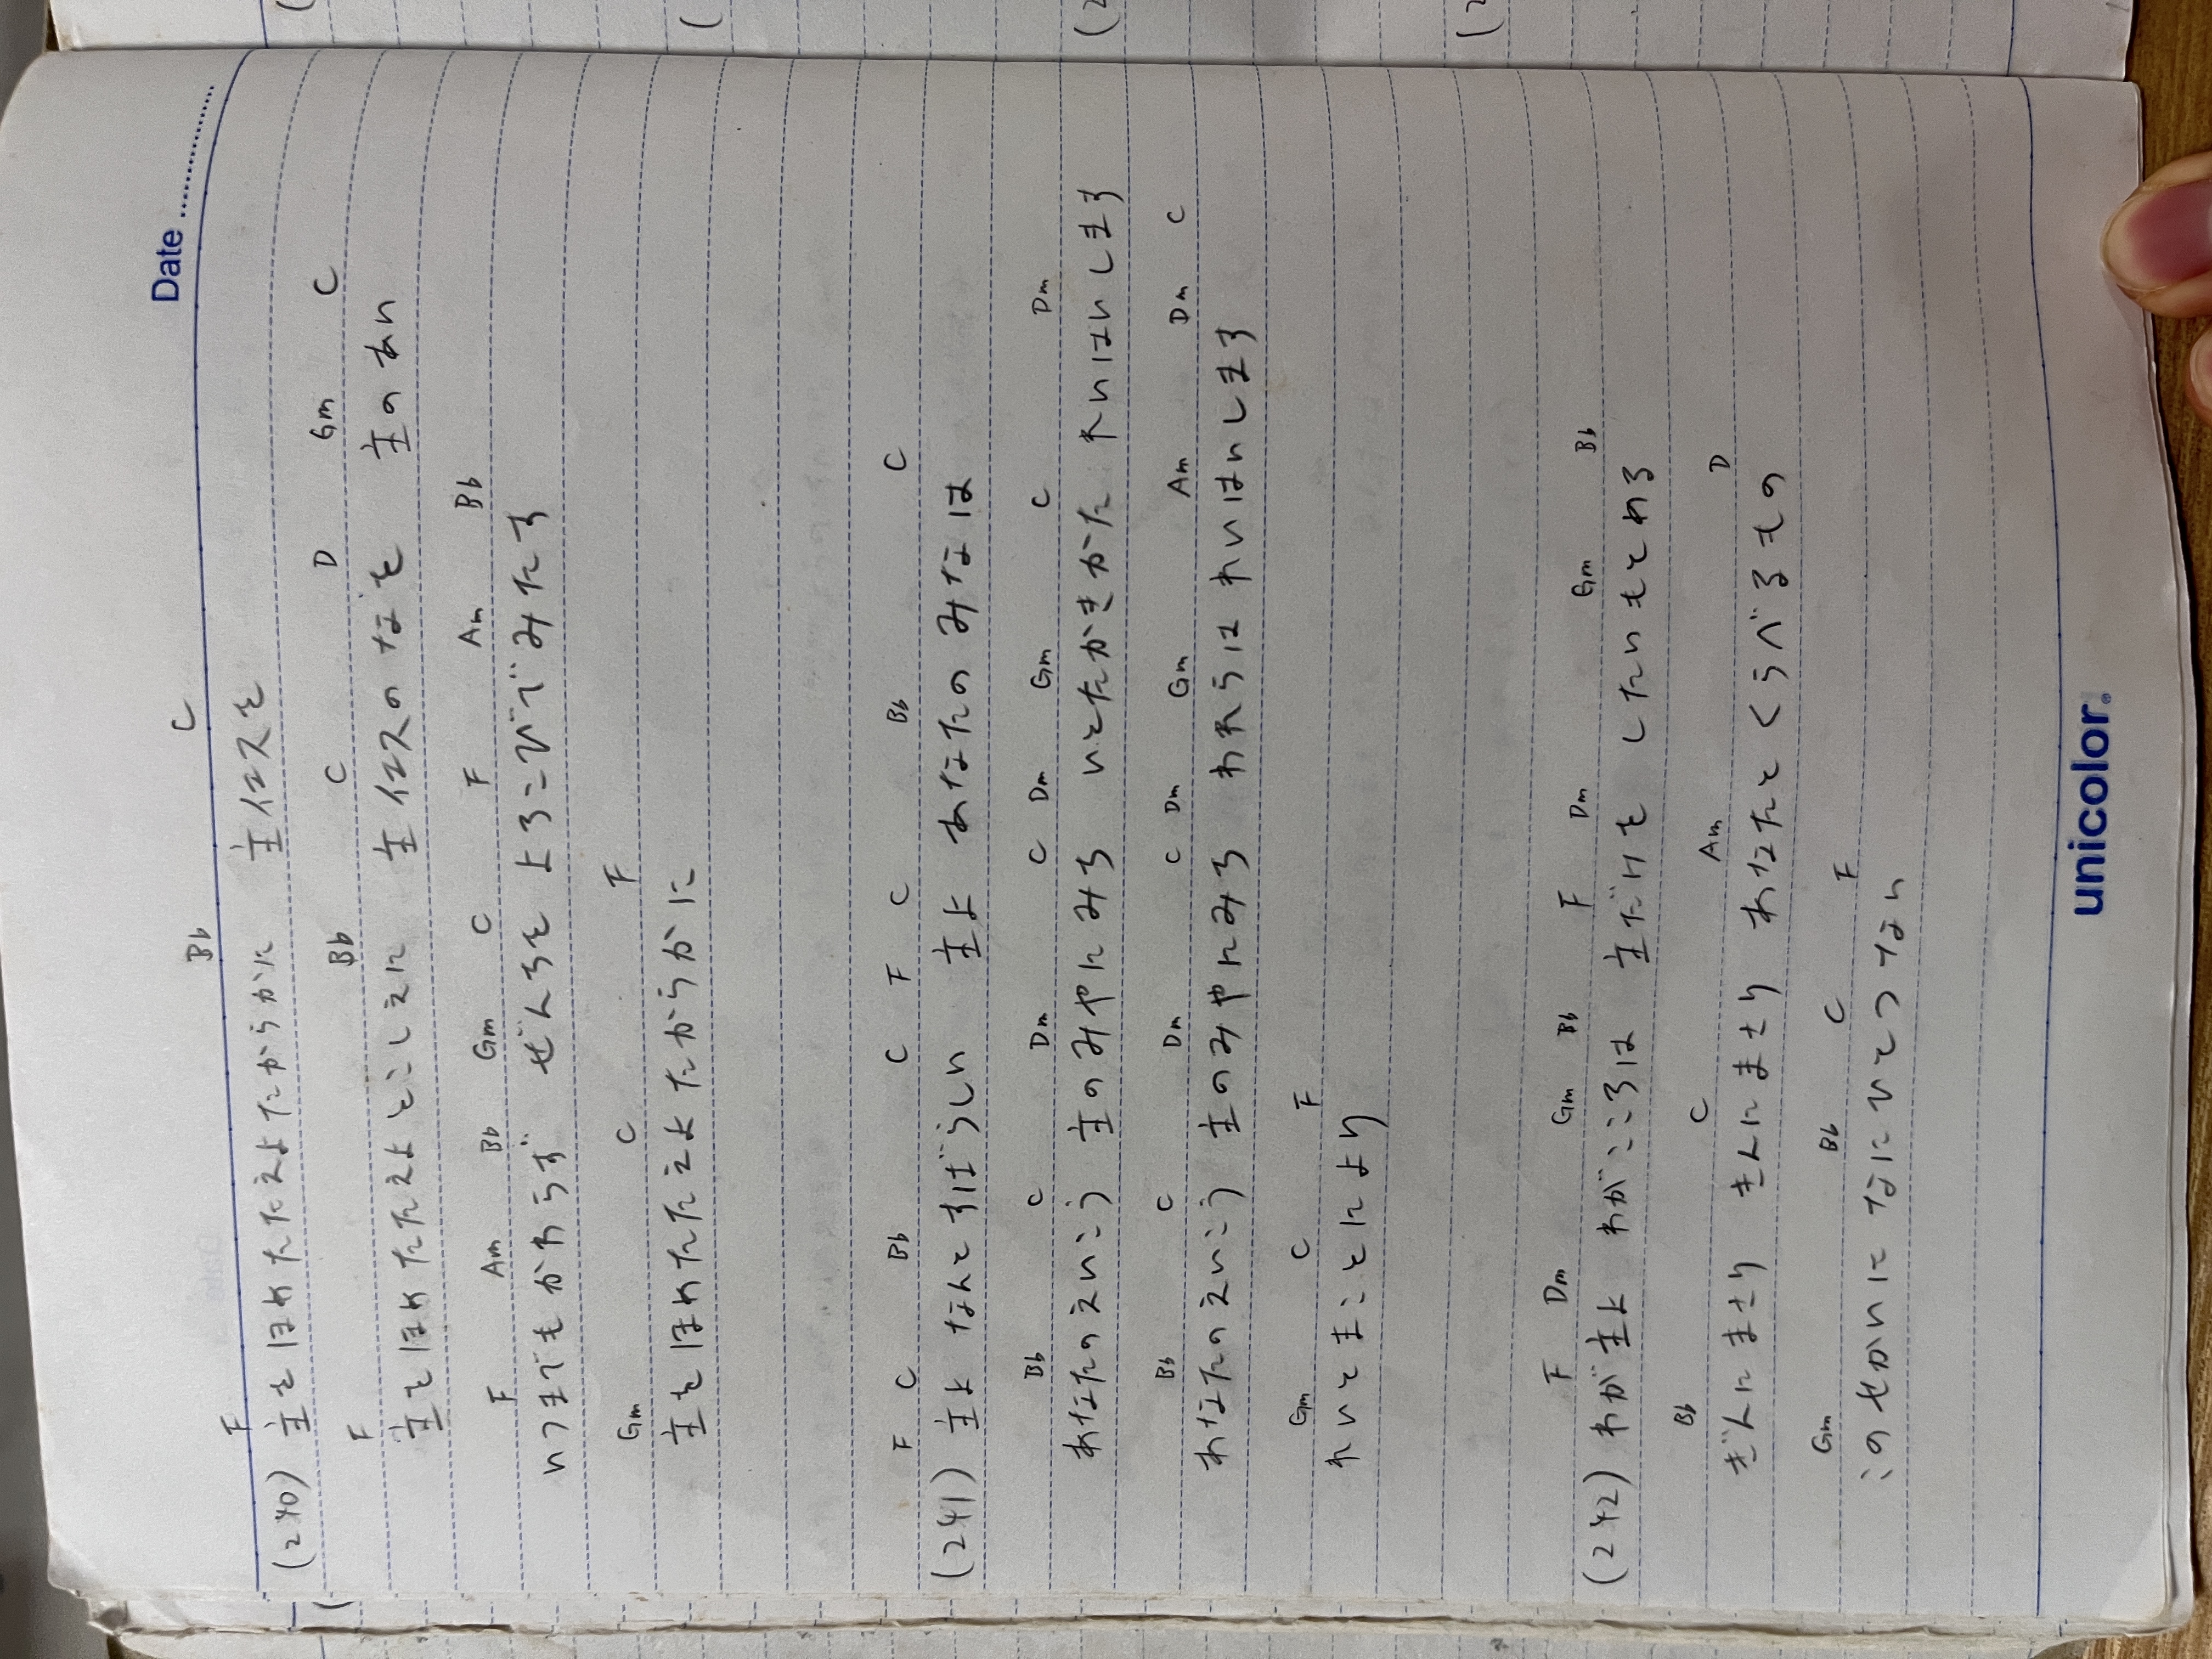 Date
F Bb C
(240) 主をほめたたえよたからかに 主イエスを
F Bb C D Gm C
主をほめたたえよとこしえに 主イエスのなを 主のあい
F Am Bb Gm C F Am Bb
いつまでもかわらず ぜんちを よろこびでみたす
Gm C F
主をほめたたえよたからかに
F C Bb C F C Bb C
(241) 主よ なんとすばらしい 主よ あなたのみなは
Bb C Dm C Dm Gm C Dm
あなたのえいこう 主のみやにみち いとたかきかた れいはいします
Bb C Dm C Dm Gm Am Dm C
あなたのえいこう 主のみやにみち われらは れいはいします
Gm C F
れいとまことにより
F Dm Gm Bb F Dm Gm Bb
(242) わが主よ わがこころは 主だけを したいもとめる
Bb C Am D
ぎんにまさり きんにまさり あなたとくらべるもの
Gm Bb C F
このせかいに なにひとつない
unicolor.